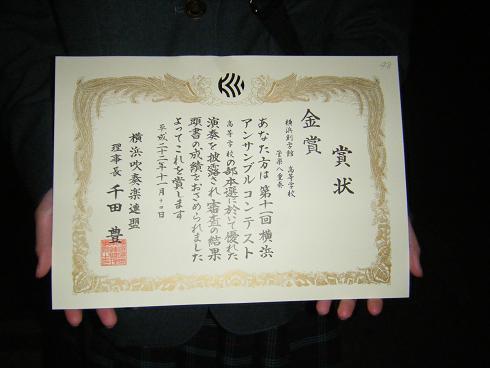 賞状
金賞
横浜創学館 高等学校
管楽八重奏
あなた方は第十一回横浜
アンサンブルコンテスト
高等学校の部本選に於いて優れた
演奏を披露され審査の結果
頭書の成績をおさめられました
よってこれを賞します
平成二十二年十一月
横浜吹奏楽連盟
理事長 千田 豊